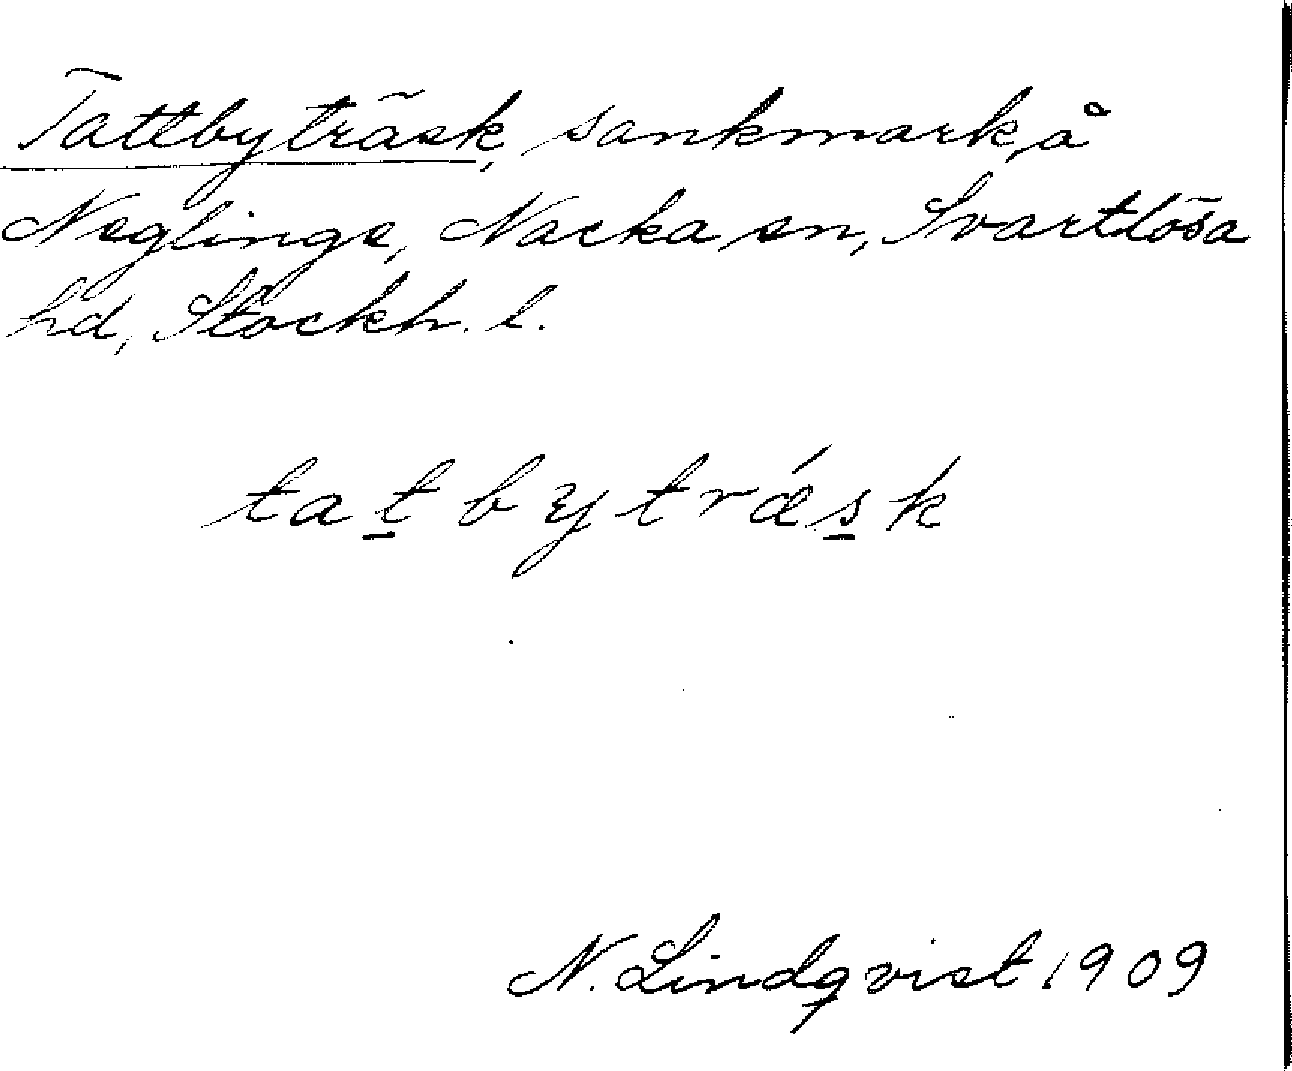 Tattbyträsk, sankmark, å
Neglinge, Nacka sn, Svartlösa
hd, Stockh. l.
tat̲bytrǽs̲k
N. Lindqvist 1909